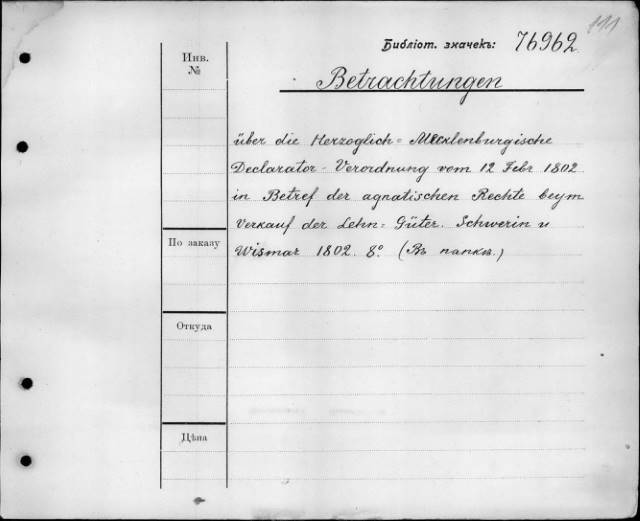 111
Библіот. значекъ: 76962
Инв.
№
Betrachtungen
über die Herzoglich= Mecklenburgische
Declarator- Verordnung vom 12 Febr 1802
in Betref der agnatischen Rechte beym
Verkauf der Lehn= Güter. Schwerin u
Wismar 1802. 8º. (Въ папкѣ.)
По заказу
Откуда
Цѣна